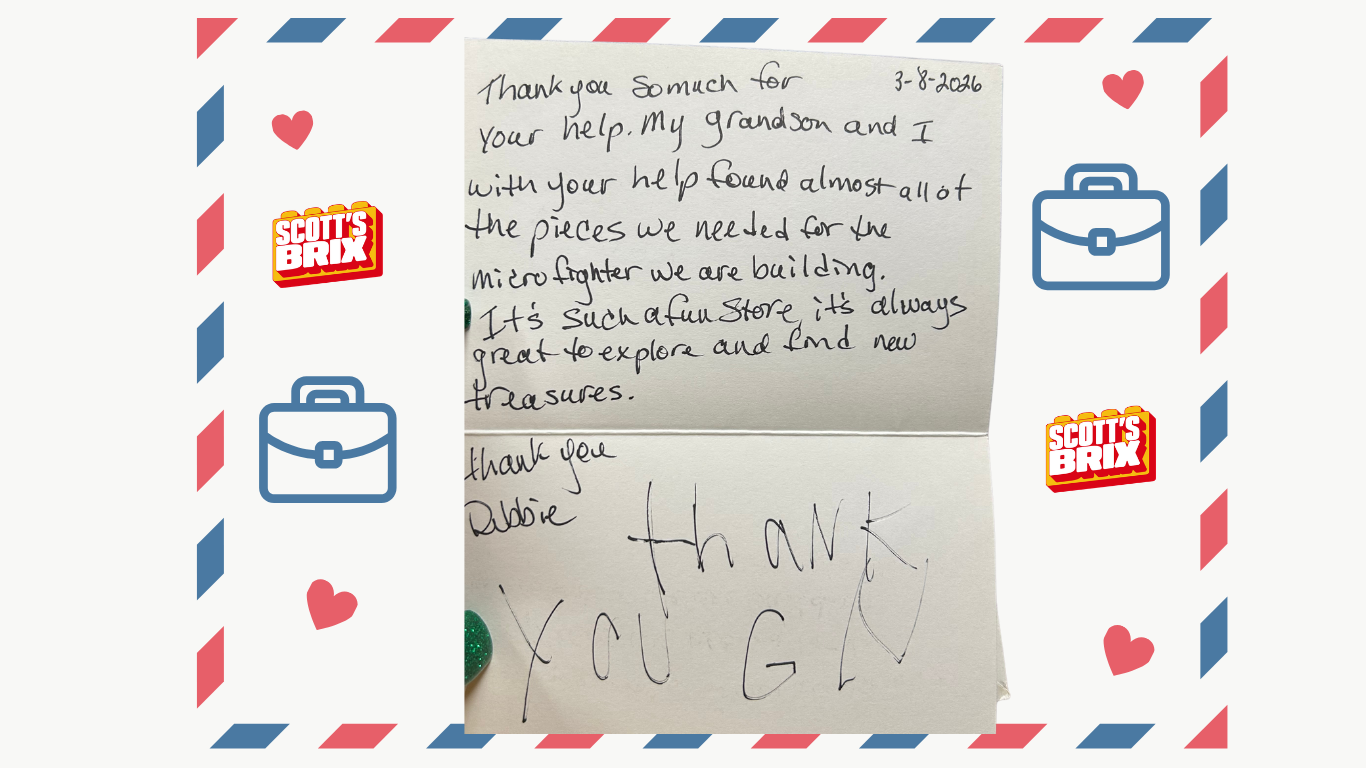 3-8-2026
Thank you so much for
Your help. My grandson and I
with your help found almost all of
the pieces we needed for the
microfighter we are building.
It's such a fun store, it's always
great to explore and find new
treasures.
thank you
Debbie
thank
you G
SCOTT'S
BRIX
SCOTT'S
BRIX